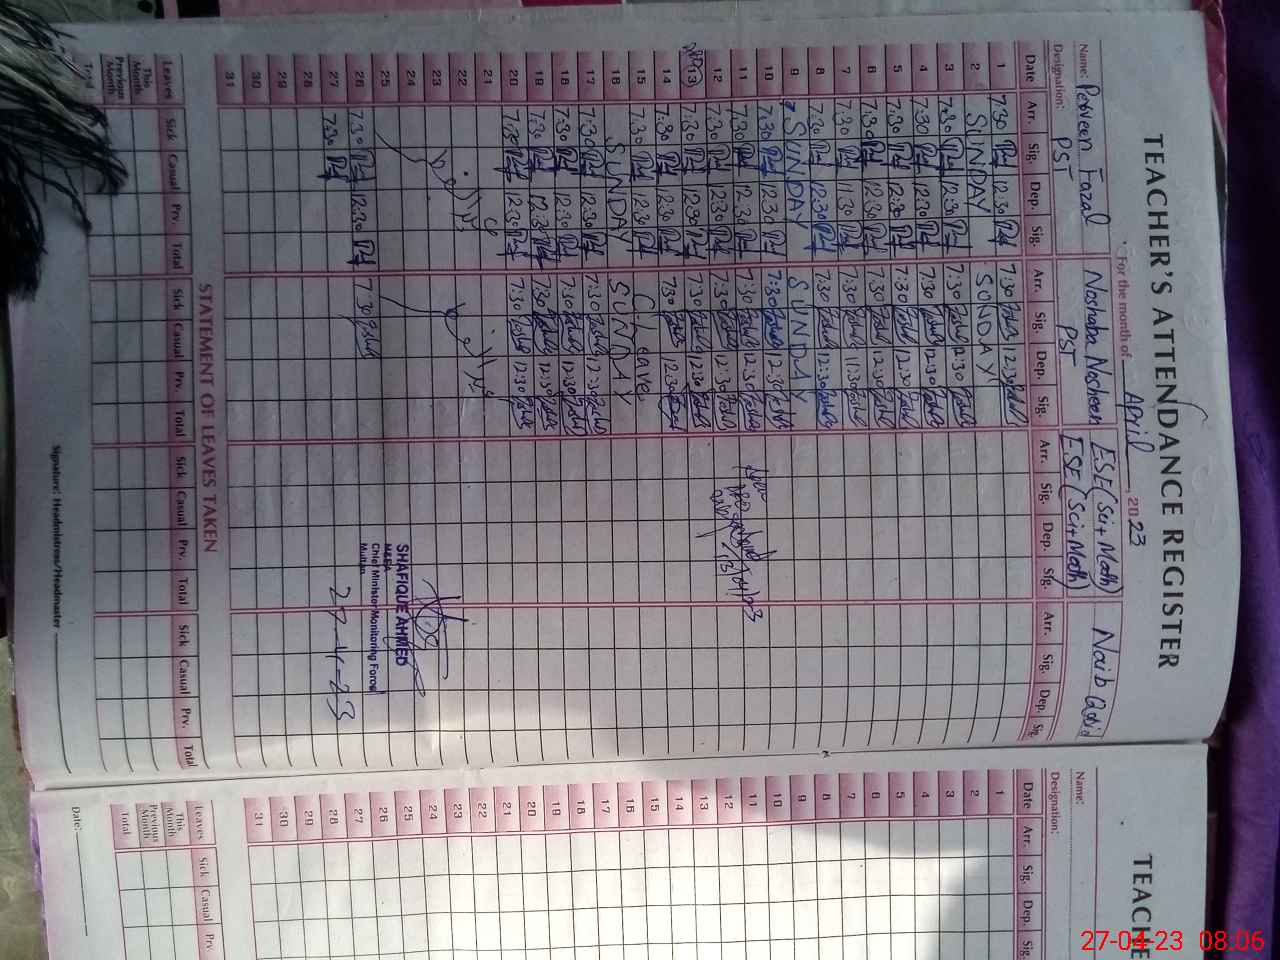 TEACHER'S ATTENDANCE REGISTER
For the month of April, 2023
Name: Perveen Fazal Noshaba Nosheen ESE(Sci+Math) Naib Qasid
Designation: PST PST ESE(Sci+Math)
Date Arr. Sig. Dep. Sig. Arr. Sig. Dep. Sig. Arr. Sig. Dep. Sig. Arr. Sig. Dep. Sig.
1 7:30 12:30 7:30 12:30
2 SUNDAY SUNDAY
3 7:30 12:30 7:30 12:30
4 7:30 12:30 7:30 12:30
5 7:30 12:30 7:30 12:30
6 7:30 12:30 7:30 12:30
7 7:30 11:30 7:30 11:30
8 7:30 12:30 7:30 12:30
9 SUNDAY SUNDAY
10 7:30 12:30 7:30 12:30
11 7:30 12:30 7:30 12:30
12 7:30 12:30 7:30 12:30
13 7:30 12:30 7:30 12:30
14 7:30 12:30 7:30 12:30
15 7:30 12:30 C/L leave
16 SUNDAY SUNDAY
17 7:30 12:30 7:30 12:30
18 7:30 12:30 7:30 12:30
19 7:30 12:30 7:30 12:30
20 7:30 12:30 7:30 12:30
21
22
23
24
25
26 7:30 12:30 7:30
27 7:30
28
29
30
31
13/04/23
SHAFIQUE AHMED
M&EA
Chief Minister Monitoring Force
Multan
27-4-23
STATEMENT OF LEAVES TAKEN
Leaves Sick Casual Prv. Total Sick Casual Prv. Total Sick Casual Prv. Total Sick Casual Prv. Total
This Month
Previous Month
Total
Signature: Headmistress/Headmaster
TEACHE
Name:
Designation:
Date Arr. Sig. Dep. Sig.
1
2
3
4
5
6
7
8
9
10
11
12
13
14
15
16
17
18
19
20
21
22
23
24
25
26
27
28
29
30
31
Leaves Sick Casual Prv
This Month
Previous Month
Total
Date:
27-04-23 08:06